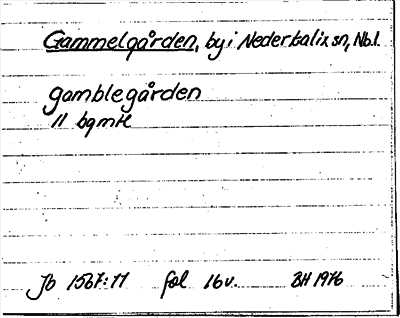 Gammelgården, by i Nederkalix sn, Nb.l.
gamblegården
11 bqmtl
Jb 1567:11 fol 16v. BH 1976